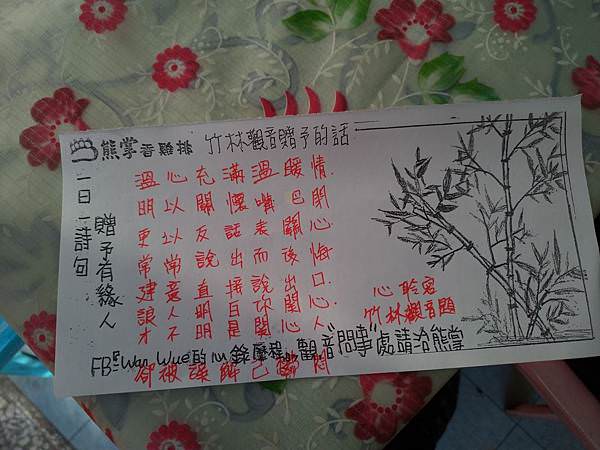 熊掌香雞排 竹林觀音贈予的話
一日一詩句
贈予有緣人
溫心充滿溫暖情.
明以關懷嘴巴閉
更以反話表關心.
常常說出而後悔
建意直接說出口.
讓人明白你關心.
才不明是關心人
卻被誤解已
心聆室
竹林觀音題
觀音"問事"處請洽熊掌